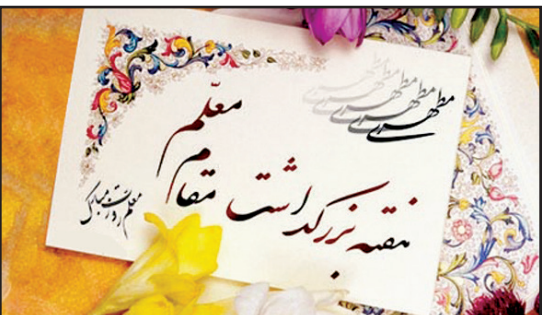 مطهری مطهری مطهری مطهری مطهری
هفته بزرگداشت
مقام
معلّم
معلم روزت مبارک